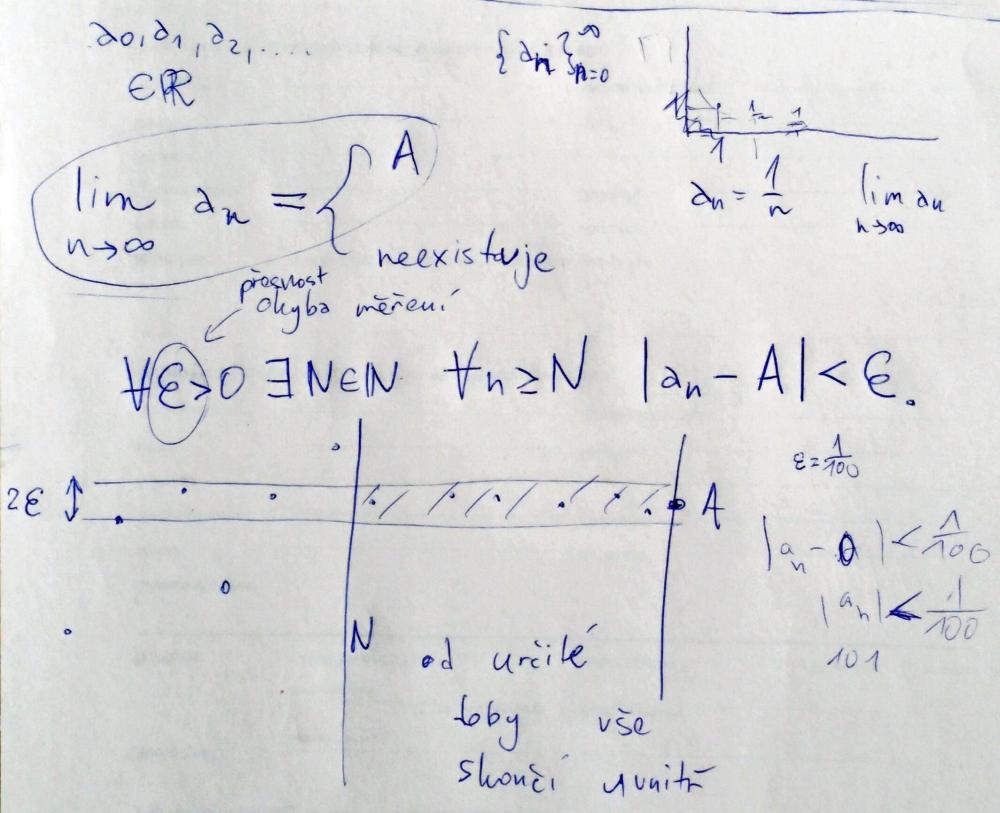 a₀, a₁, a₂, ...
∈ℝ
{aₙ}ₙ₌₀^∞
1
aₙ = 1/n
lim aₙ
n→∞
lim aₙ = { A
n→∞
neexistuje
přesnost
chyba měření
∀ε>0 ∃N∈ℕ ∀n≥N |aₙ - A| < ε.
ε=1/100
2ε
A
|aₙ - 0| < 1/100
|aₙ| < 1/100
101
N
od určité
doby vše
skončí uvnitř